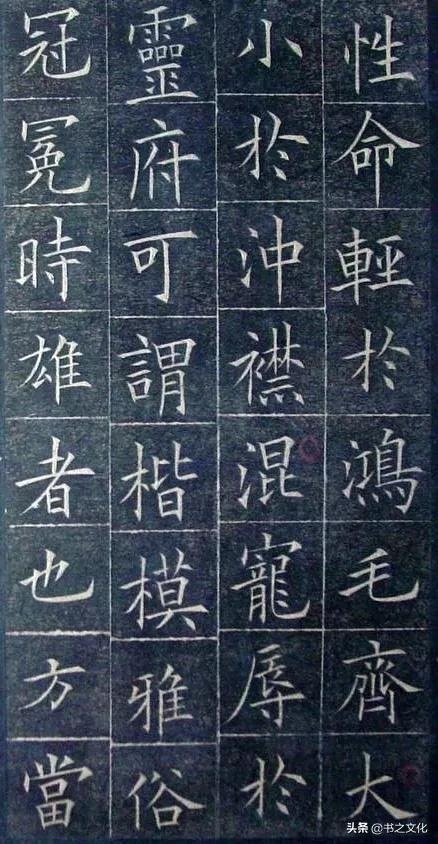 性命輕於鴻毛齊大
小於沖襟混寵辱於
靈府可謂楷模雅俗
冠冕時雄者也方當
头条 @书之文化